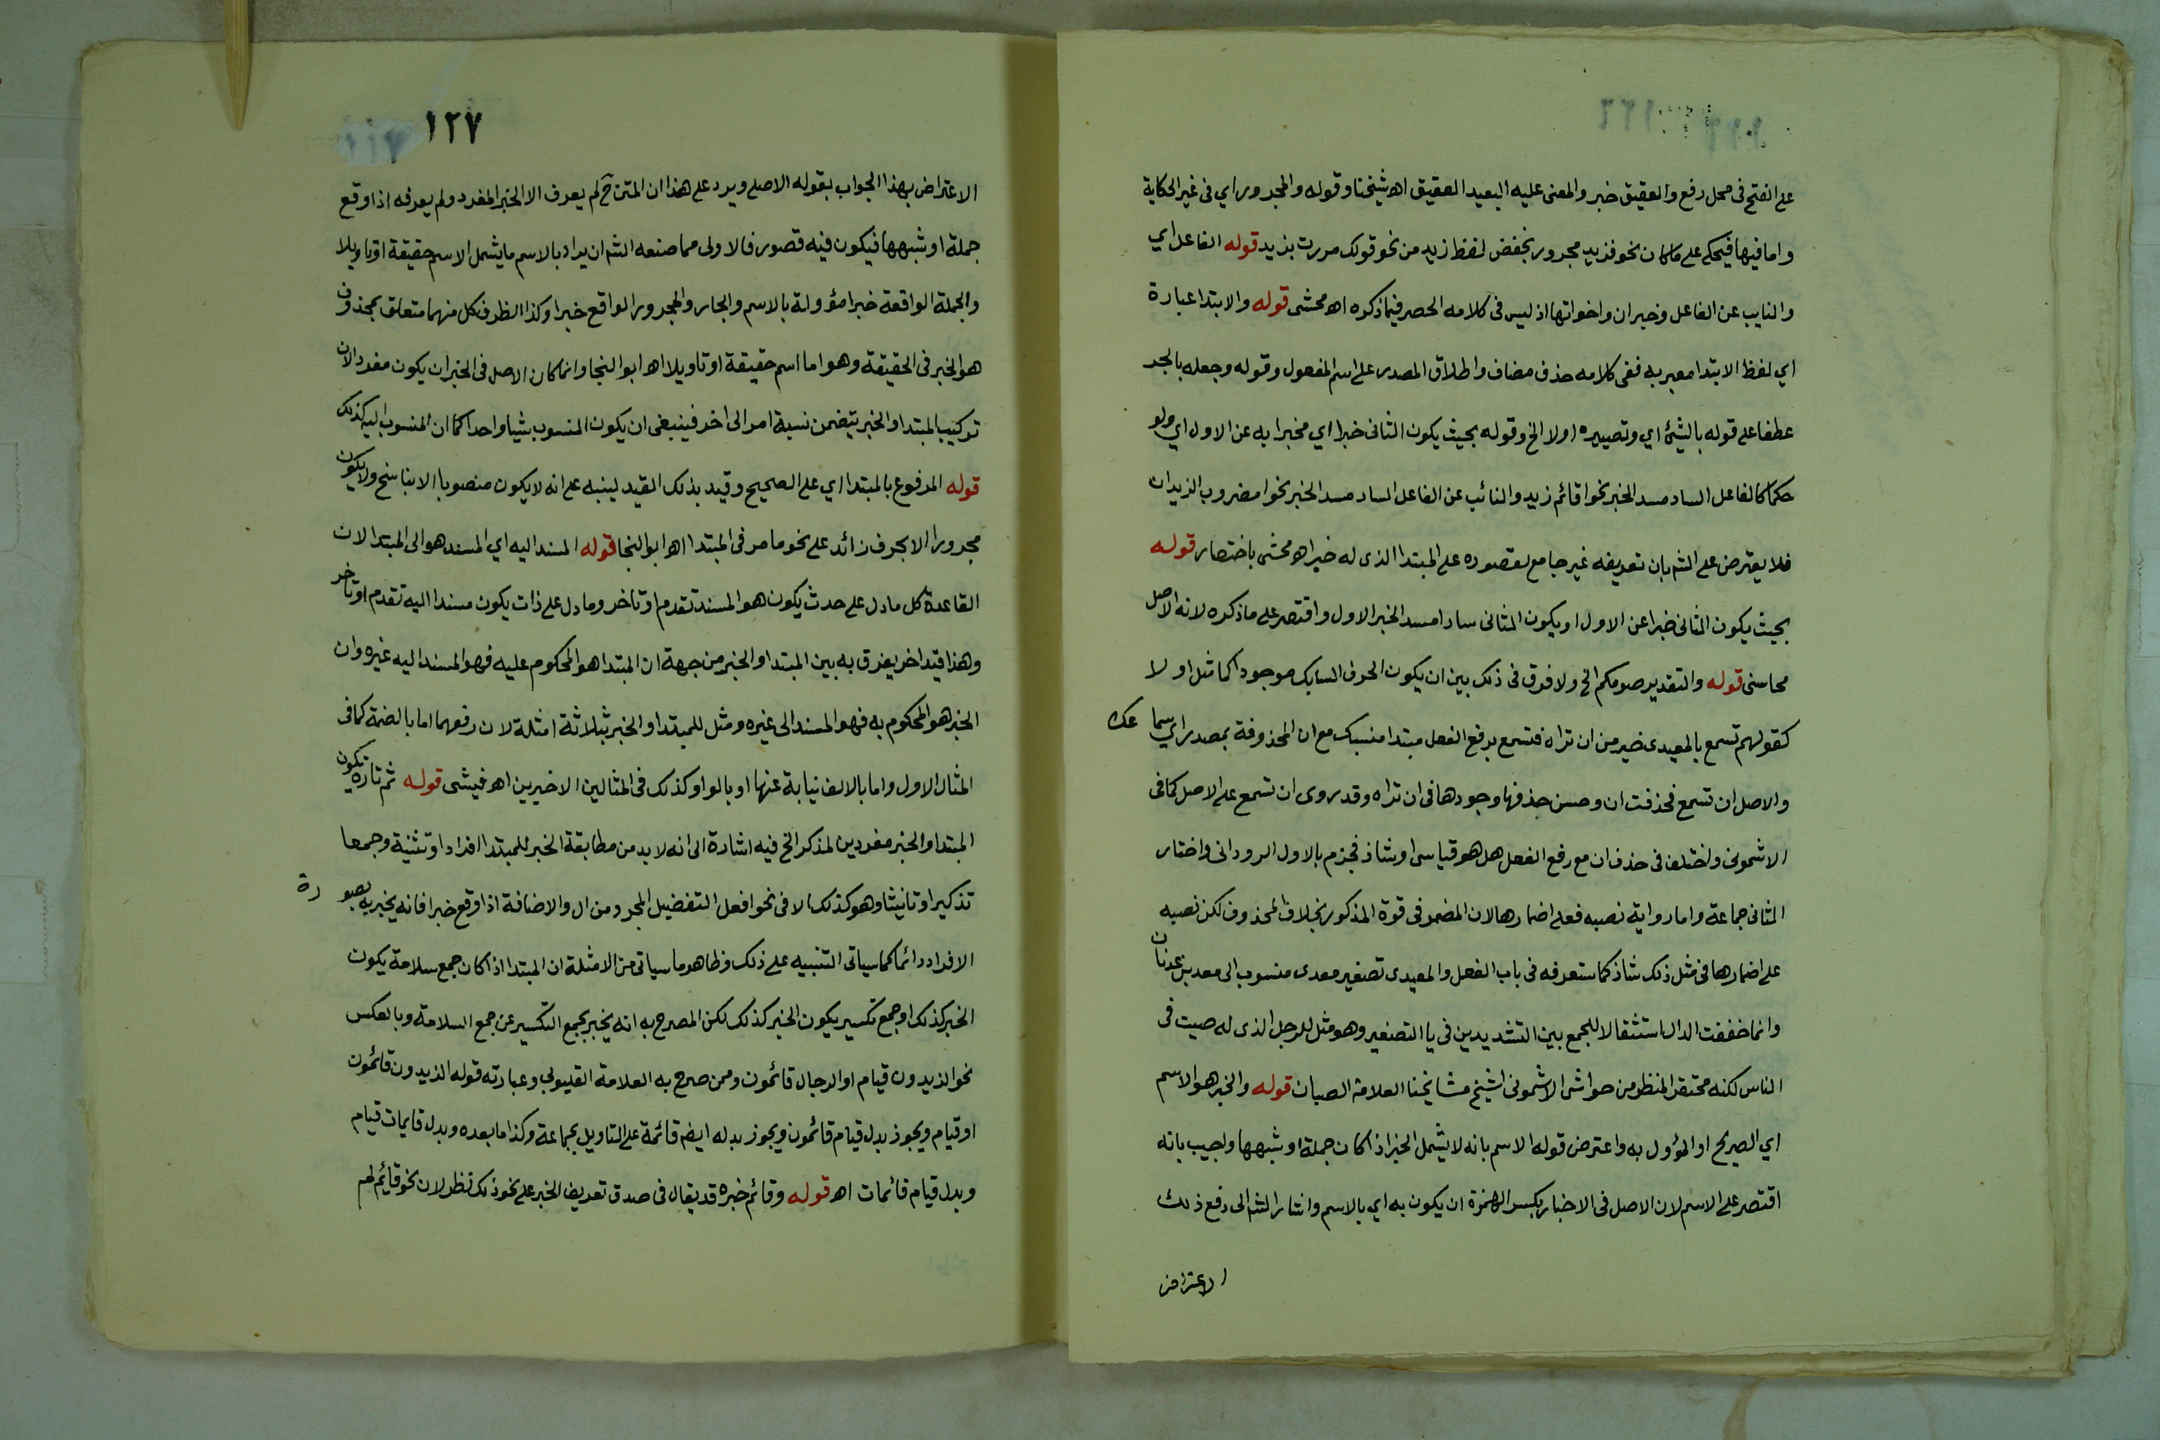 على الفتح فى محل رفع والعقيق خبر والمعنى عليه البعيد العقيق اه شيخنا وقوله والمجرور اي فى غير الحكاية
واما فيها فيحكى على ماكان نحو فزيد مجرور بخفض لفظ زيد من نحو قولك مررت بزيد قوله الفاعل اي
والنايب عن الفاعل وخبر ان واخواتها اذ ليس فى كلامه الحصر فيما ذكره اه محشى قوله والابتدا عبارة
اي لفظ الابتدا معبر به ففى كلامه حذف مضاف واطلاق المصدر على اسم المفعول وقوله وجعله بالجر
عطفا على قوله بالشئ اي وتصييره اولا الخ وقوله بحيث يكون الثانى خبرا اي مخبرا به عن الاول اي ولو
حكما كالفاعل الساد مسد الخبر نحو اقائم زيد والنائب عن الفاعل الساد مسد الخبر نحو امضروب الزيدان
فلا يعترض على الشم بان تعريفه غير جامع لقصوره على المبتدا الذى له خبر اه محشى باختصار قوله
بحيث يكون الثانى خبرا عن الاول او يكون الثانى سادا مسد الخبر الاول واقتصر على ما ذكره لانه الاصل
محاسنى قوله والتقدير صومكم الخ ولا فرق فى ذلك بين ان يكون الحرف السابك موجودا كما مثل او لا
كقولهم تسمع بالمعيدى خير من ان تراه فتسمع برفع الفعل مبتدا منسبك مع ان المحذوفة بمصدر اي سماعك
والاصل ان تسمع فحذفت ان وحسن حذفها وجودها فى ان تراه وقد روى ان تسمع على الاصل كما فى
الاشمونى واختلف فى حذف ان مع رفع الفعل هل هو قياسى او شاذ فجزم بالاول الرودانى واختار
الثانى جماعة واما رواية نصبه فعلى اضمارها لان المضمر فى قوة المذكور بخلاف المحذوف لكن نصبه
على اضمارها فى مثل ذلك شاذ كما ستعرفه فى باب الفعل والمعيدى تصغير معدى منسوب الى معد بن عدنان
وانما خففت الدال استثقالا للجمع بين التشديدين فى يا التصغير وهو مثل للرجل الذى له صيت فى
الناس لكنه محتقر المنظر من حواشى الاشمونى لشيخ مشايخنا العلامة الصبان قوله والخبر هو الاسم
اي الصريح او المؤول به واعترض قوله الاسم بانه لا يشمل الخبر اذا كان جملة او شبهها واجيب بانه
اقتصر على الاسم لان الاصل فى الاخبار بكسر الهمزة ان يكون به اي بالاسم واشار الشم الى دفع ذلك
الاعتراض
١٢٧
الاعتراض بهذا الجواب بقوله الاصل ويرد على هذا ان المتن ح لم يعرف الا الخبر المفرد ولم يعرفه اذا وقع
جملة او شبهها فيكون فيه قصور فالاولى مما صنعه الشم ان يراد بالاسم ما يشمل الاسم حقيقة او تاويلا
والجملة الواقعة خبرا مؤولة بالاسم والجار والمجرور الواقع خبرا وكذا الظرف كل منهما متعلق بمحذوف
هو الخبر فى الحقيقة وهو اما اسم حقيقة او تاويلا اه ابو النجا وانما كان الاصل فى الخبر ان يكون مفردا لان
تركيب المبتدا والخبر يتضمن نسبة امر الى اخر فينبغى ان يكون المنسوب شيا واحدا كما ان المنسوب اليه كذلك
قوله المرفوع بالمبتدا اي على الصحيح وقيد بذلك القيد لينبه على انه لا يكون منصوبا الا بناسخ ولا يكون
مجرورا الا بحرف زائد على نحو ما مر فى المبتدا اه ابو النجا قوله المسند اليه اي المسند هو الى المبتدا لان
القاعدة كل ما دل على حدث يكون هو المسند تقدم او تاخر وما دل على ذات يكون مسندا اليه تقدم او تاخر
وهذا قيد اخر يفرق به بين المبتدا والخبر من جهة ان المبتدا هو المحكوم عليه فهو المسند اليه غيره وان
الخبر هو المحكوم به فهو المسند الى غيره ومثل للمبتدا والخبر بثلاثة امثلة لان رفعهما اما بالضمة كما فى
المثال الاول واما بالالف نيابة عنها او بالواو كذلك فى المثالين الاخيرين اه فيشى قوله ثم تارة يكون
المبتدا والخبر مفردين لمذكر الخ فيه اشارة الى انه لا بد من مطابقة الخبر للمبتدا افرادا وتثنية وجمعا
تذكيرا وتانيثا وهو كذلك الا فى نحو افعل التفضيل المجرد من ال والاضافة اذا وقع خبرا فانه يخبر به بصورة
الافراد دائما كما سياتى التنبيه على ذلك وظاهر ما سياتى من الامثلة ان المبتدا اذا كان جمع سلامة يكون
الخبر كذلك او جمع تكسير يكون الخبر كذلك لكن المصرح به انه يخبر بجمع التكسير عن جمع السلامة وبالعكس
نحو الزيدون قيام او الرجال قائمون وممن صرح به العلامة القليوبي وعبارته قوله الزيدون قائمون
او قيام ويجوز بدل قيام قائمون ويجوز بدله ايضا قائمة على التاويل بجماعة وكذا ما بعده وبدل قايمات قيام
وبدل قيام قائمات اه قوله وقائم خبره قد يقال فى صدق تعريف الخبر على نحو ذلك نظر لان نحو قايم لم